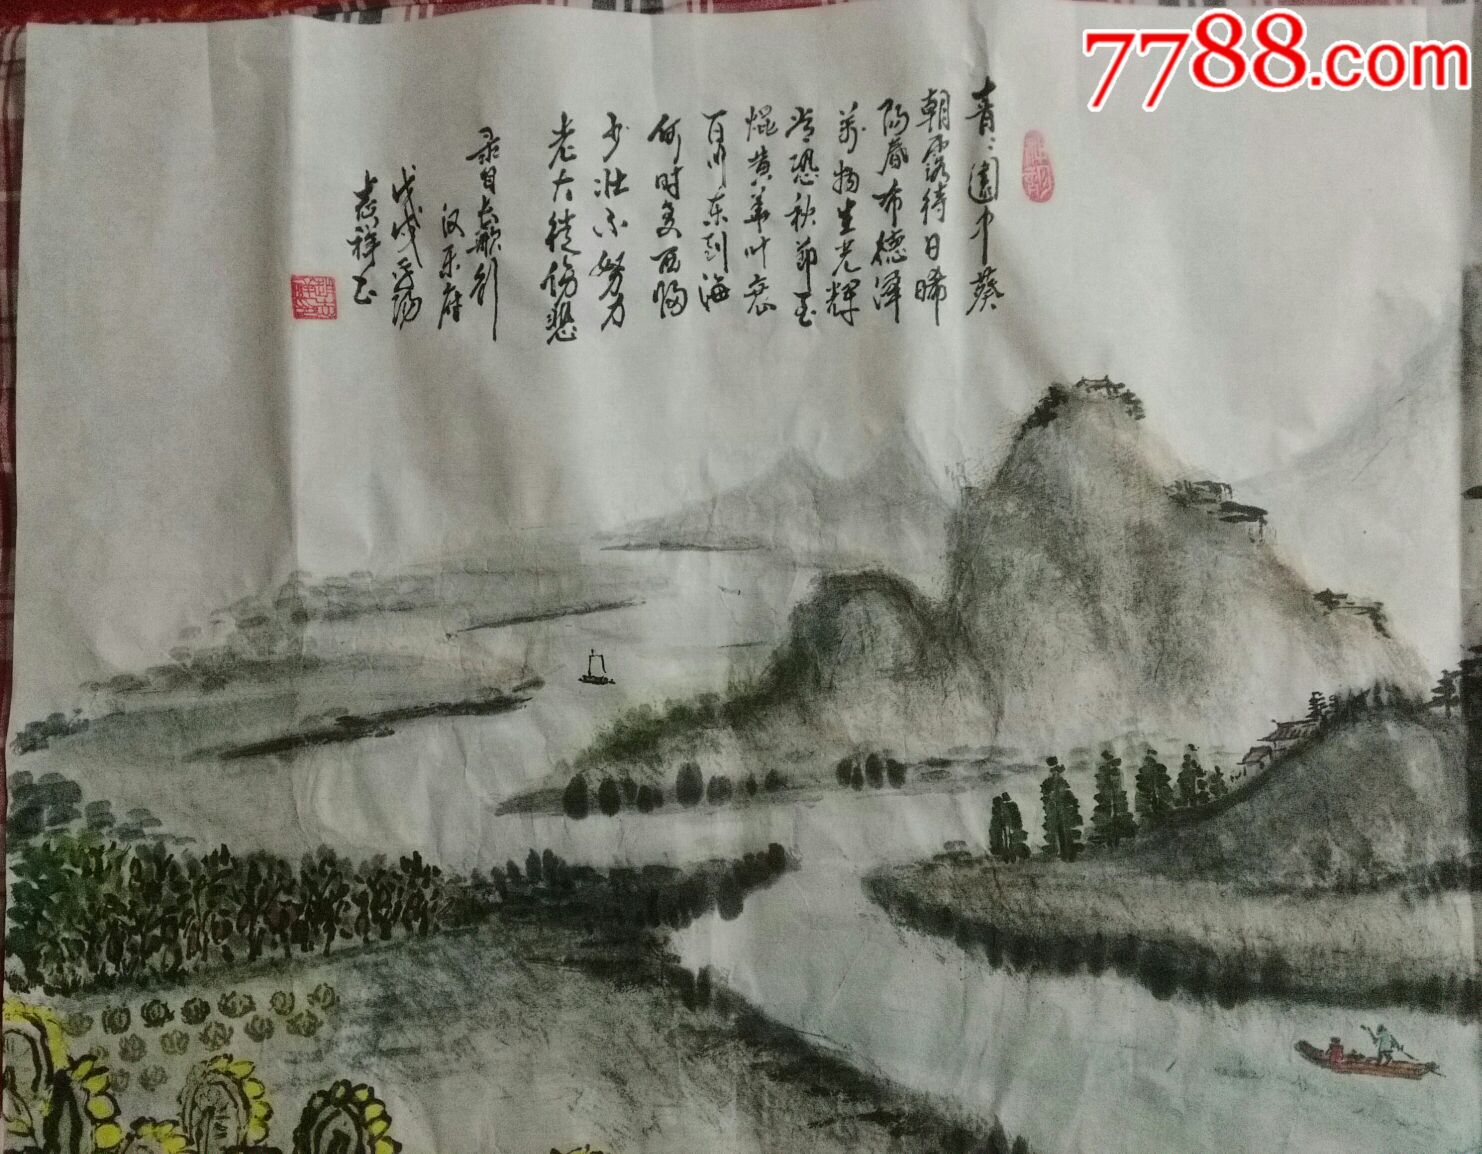 7788.com
青青園中葵
朝露待日晞
阳春布德泽
万物生光辉
常恐秋节至
焜黄华叶衰
百川东到海
何时复西归
少壮不努力
老大徒伤悲
录自长歌行
汉乐府
戊戌
志祥